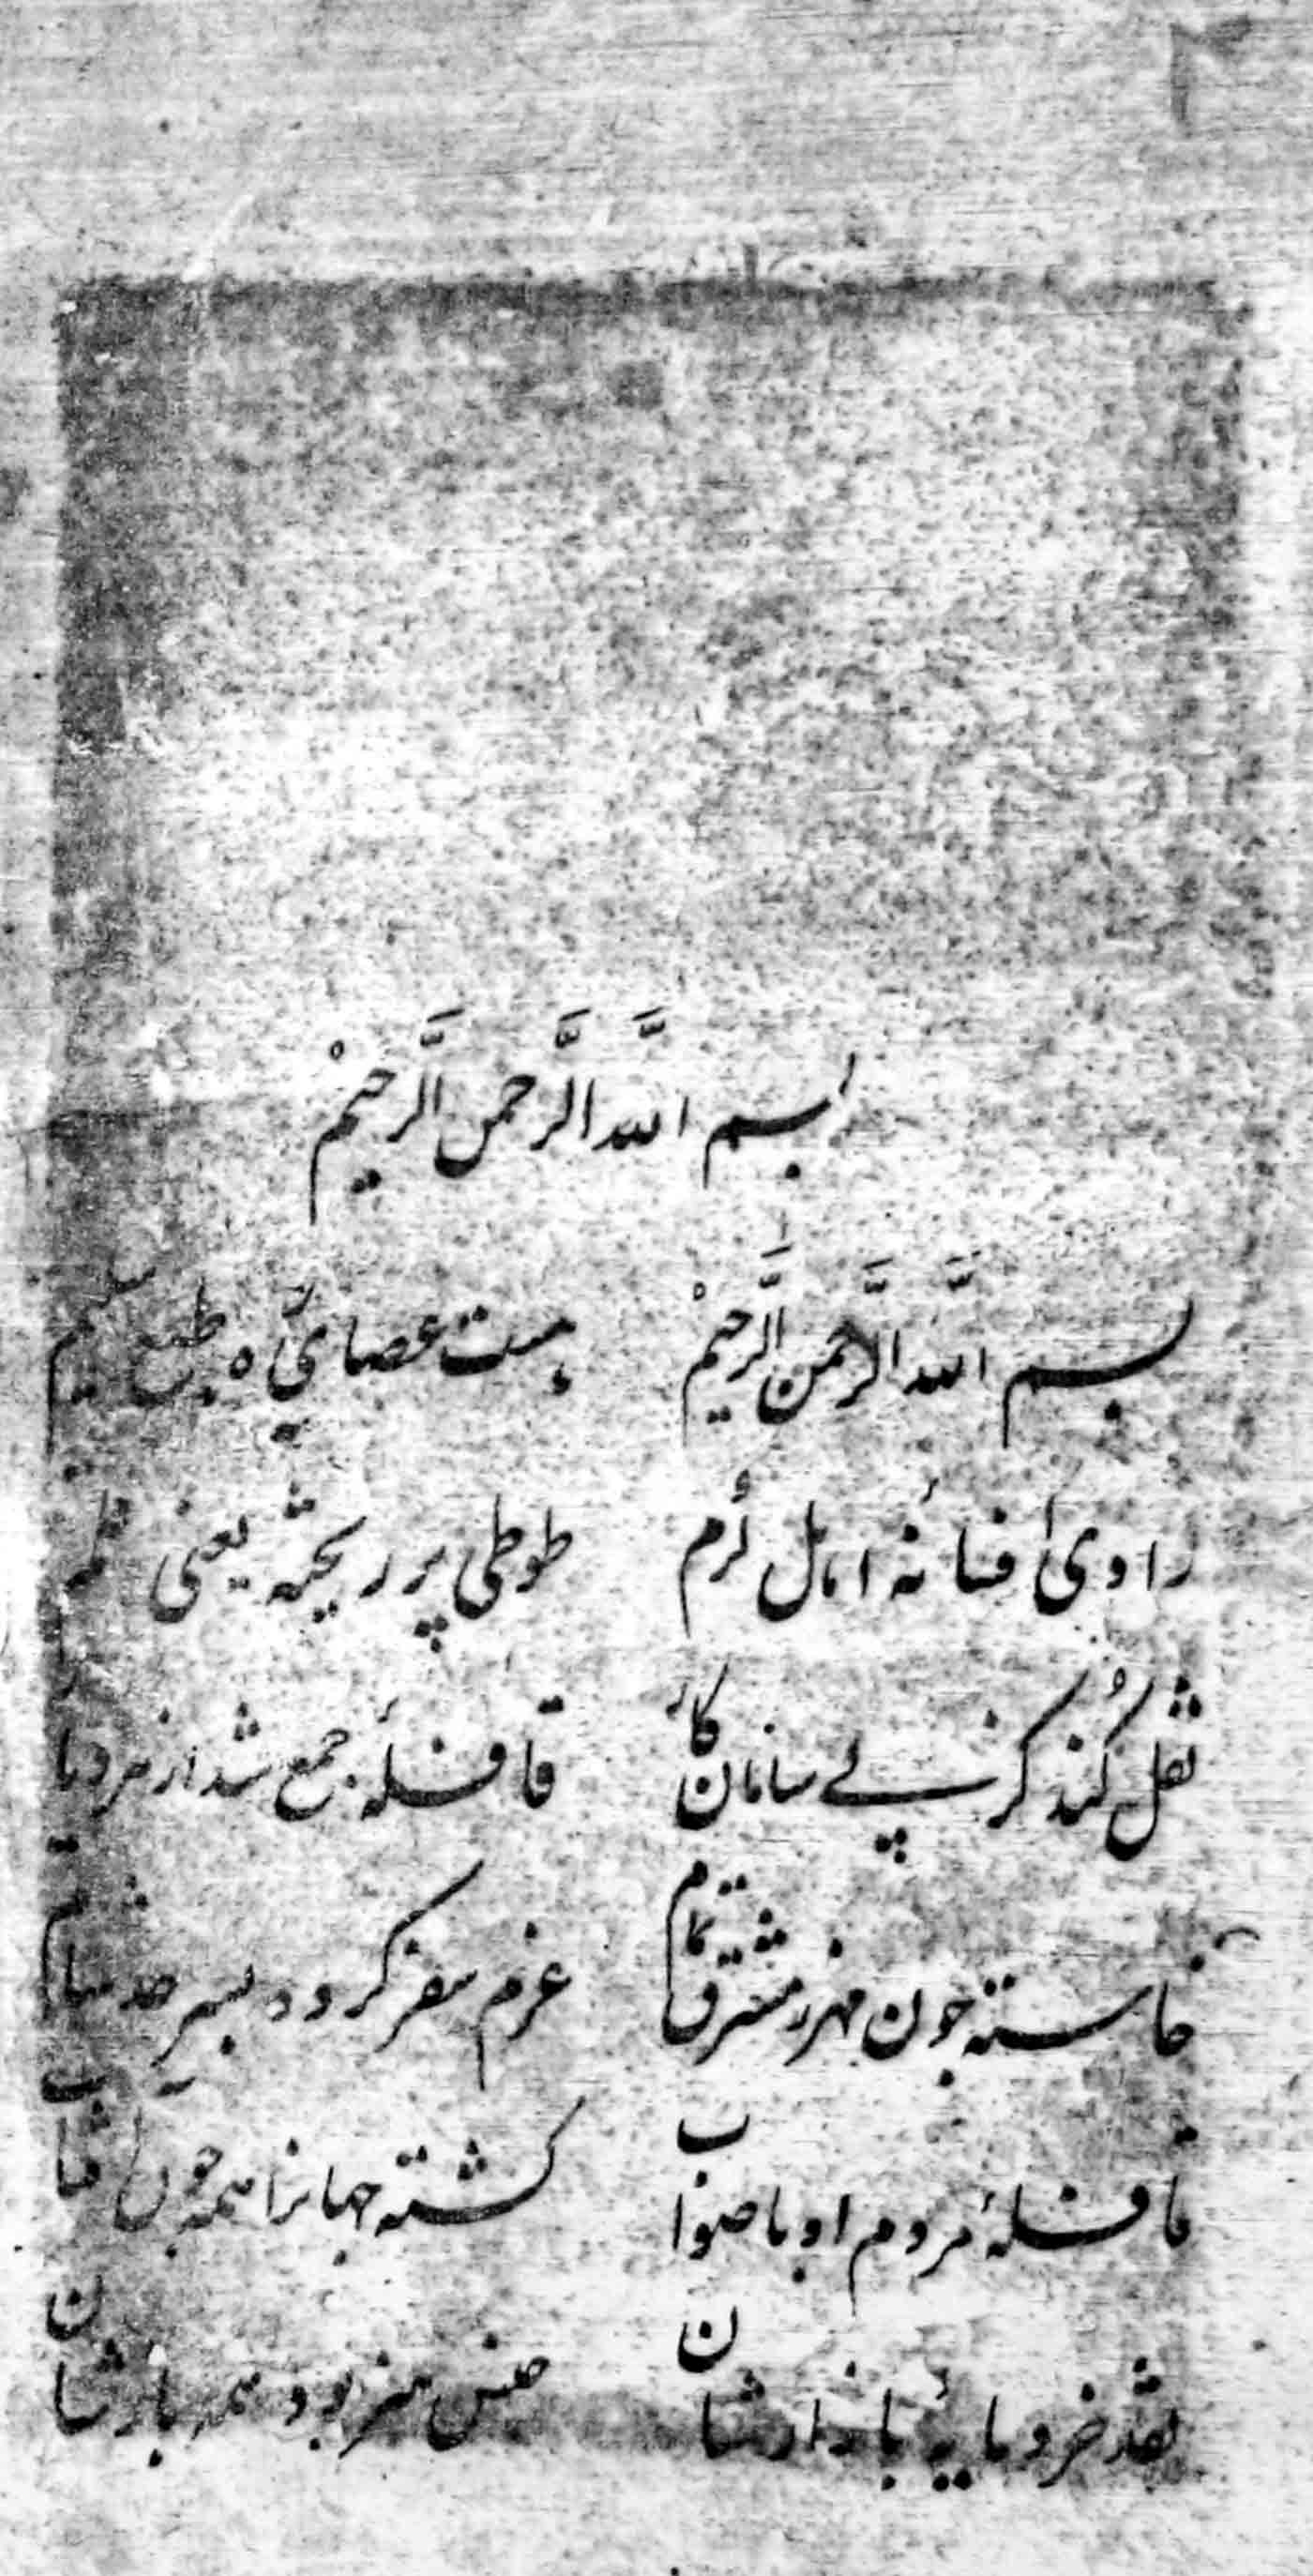 بسم الله الرحمن الرحیم
بسم الله الرحمن الرحیم هست عصای ره طبع سلیم
راوی افسانه اهل کرم طوطی پر ریخته یعنی قلم
نقل کند کز پے سامان کار قافلهٔ جمع شد از هر دیار
خاسته چون مهر ز مشرق تمام عزم سفر کرده بسرحد شام
قافلهٔ مردم او با صواب گشته جهانرا همه چون آفتاب
نقد خرد مایهٔ بازارشان جنس هنر بود همه بارشان